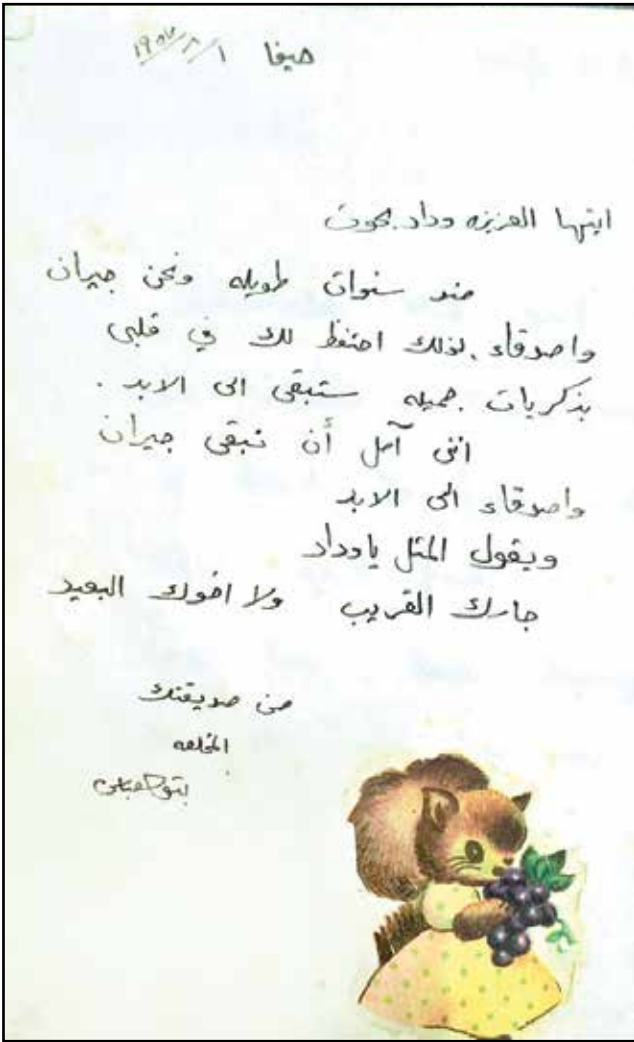 حيفا
ايتها العزيزه وداد بحوث
منذ سنوات طويله ونحن جيران
واصدقاء. لذلك احتفظ لك في قلبي
بذكريات جميله ستبقى الى الابد.
انني آمل أن نبقى جيران
واصدقاء الى الابد
ويقول المثل يا وداد
جارك القريب ولا اخوك البعيد
من صديقتك
المخلصه